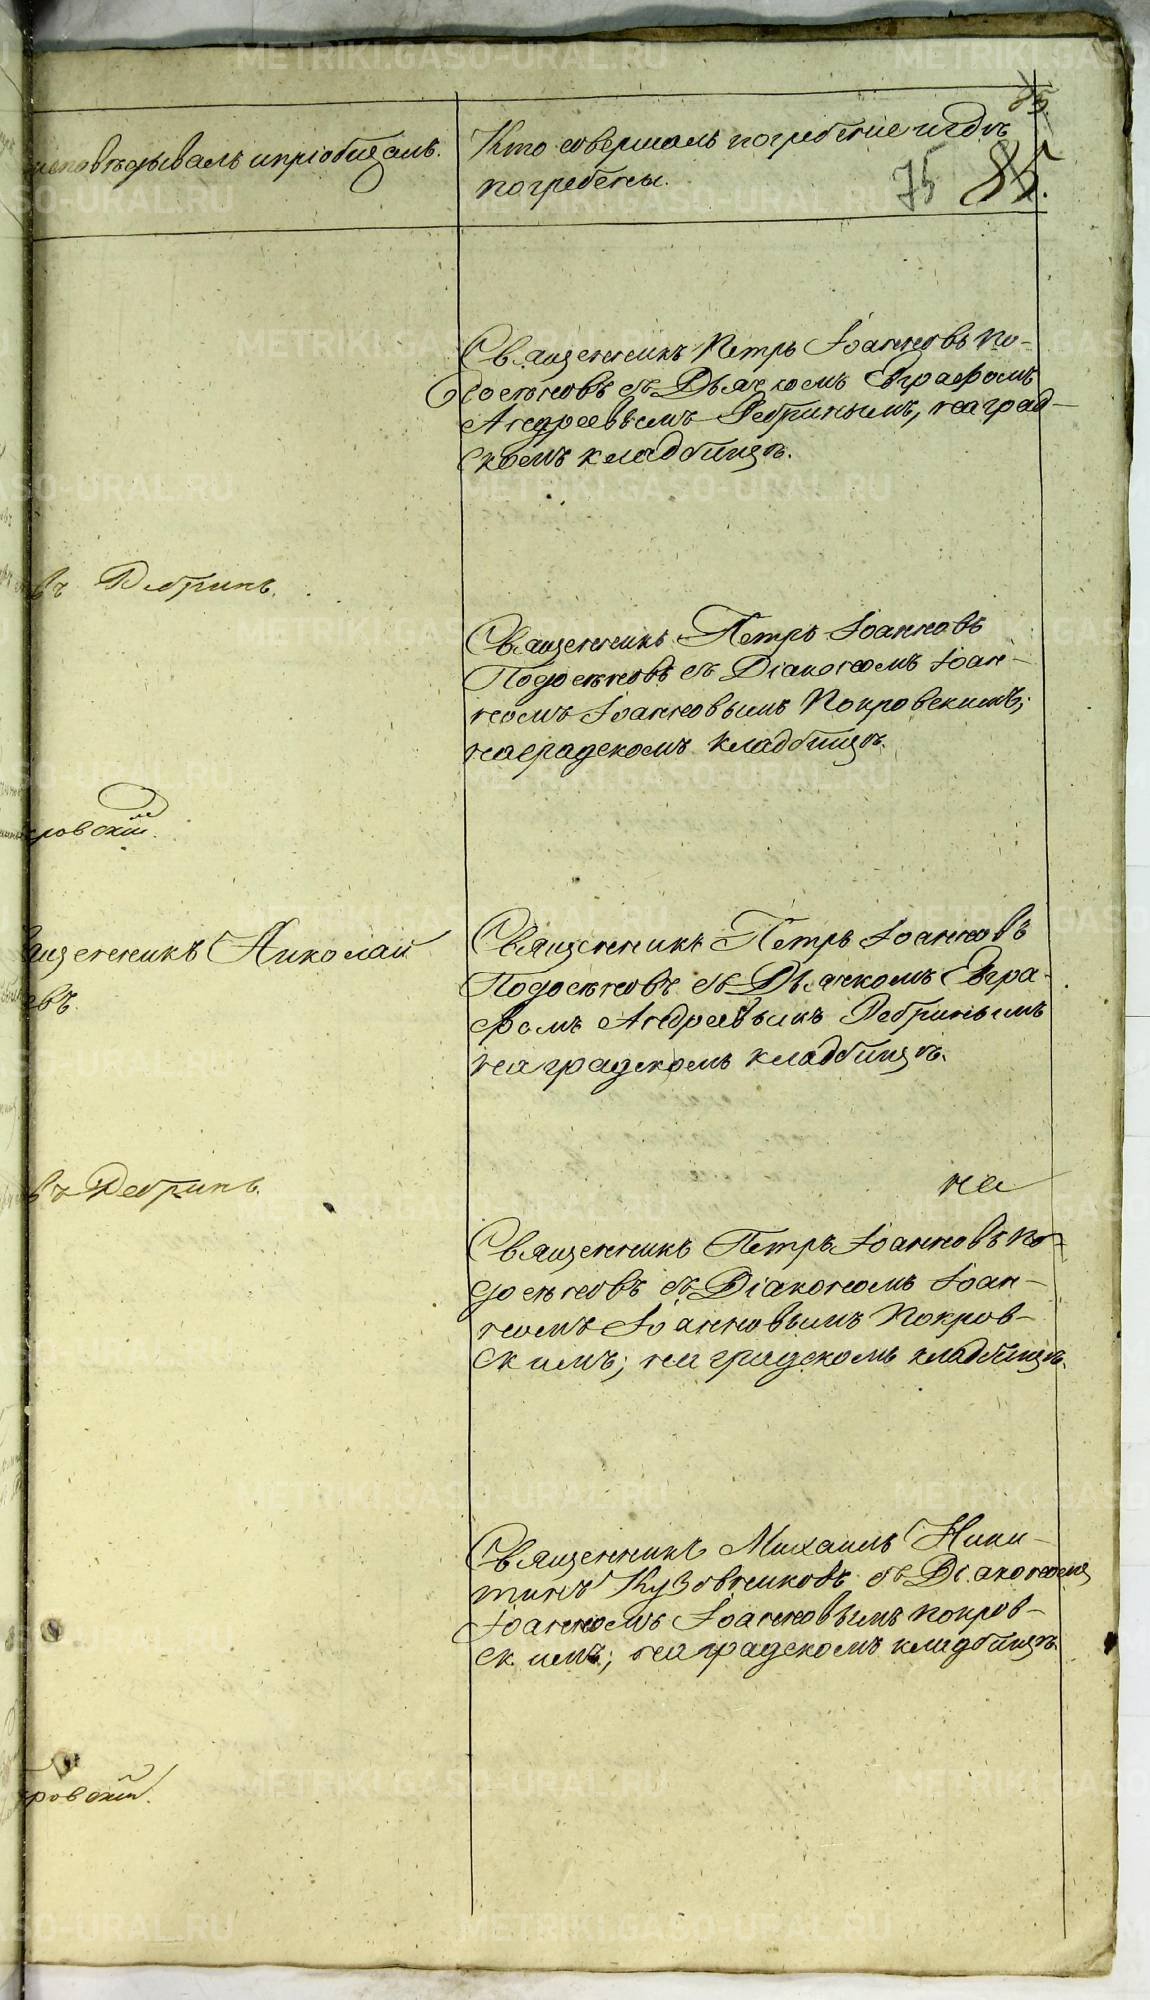 исповѣдывалъ и пріобщалъ.
Кто совершалъ погребеніе и гдѣ
погребены.
75 85.
Священникъ Петръ Іоанновъ По-
досеновъ съ Дьячкомъ Евграфомъ
Андреевымъ Ребринымъ, на град-
скомъ кладбищѣ.
въ Ребринъ.
Священникъ Петръ Іоанновъ
Подосеновъ съ Діакономъ Іоан-
номъ Іоанновымъ Покровскимъ;
на градскомъ кладбищѣ.
кровскій.
ященникъ Николай
евъ.
Священникъ Петръ Іоанновъ
Подосеновъ съ Дьячкомъ Евгра-
фомъ Андреевымъ Ребринымъ
на градскомъ кладбищѣ.
въ Ребринъ.
на
Священникъ Петръ Іоанновъ По-
досеновъ съ Діакономъ Іоан-
номъ Іоанновымъ Покров-
скимъ; на градскомъ кладбищѣ.
Священникъ Михаилъ Ники-
тинъ Кузовниковъ съ Діакономъ
Іоанномъ Іоанновымъ Покров-
скимъ; на градскомъ кладбищѣ.
ровскій.
METRIKI.GASO-URAL.RU